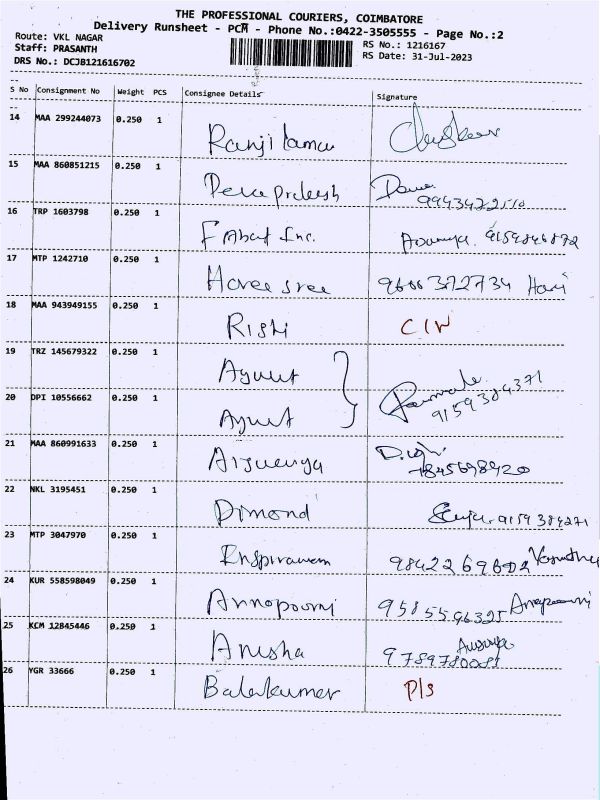 THE PROFESSIONAL COURIERS, COIMBATORE
Delivery Runsheet - PCM - Phone No.:0422-3505555 - Page No.:2
Route: VKL NAGAR RS No.: 1216167
Staff: PRASANTH RS Date: 31-Jul-2023
DRS No.: DCJB121616702
S No Consignment No Weight PCS Consignee Details Signature
14 MAA 299244073 0.250 1
15 MAA 860851215 0.250 1
16 TRP 1603798 0.250 1 Inc.
17 MTP 1242710 0.250 1 Haree sree 9666372734 Hari
18 MAA 943949155 0.250 1 Rishi C/W
19 TRZ 145679322 0.250 1
20 DPI 10556662 0.250 1 9159384371
21 MAA 860991633 0.250 1 7845698920
22 NKL 3195451 0.250 1 Dimond 9159384271
23 MTP 3047970 0.250 1
24 KUR 558598049 0.250 1 Annapoorni 9585596325 Annapoorni
25 KCM 12845446 0.250 1 Anusha
26 YGR 33666 0.250 1 Balakumar P/S